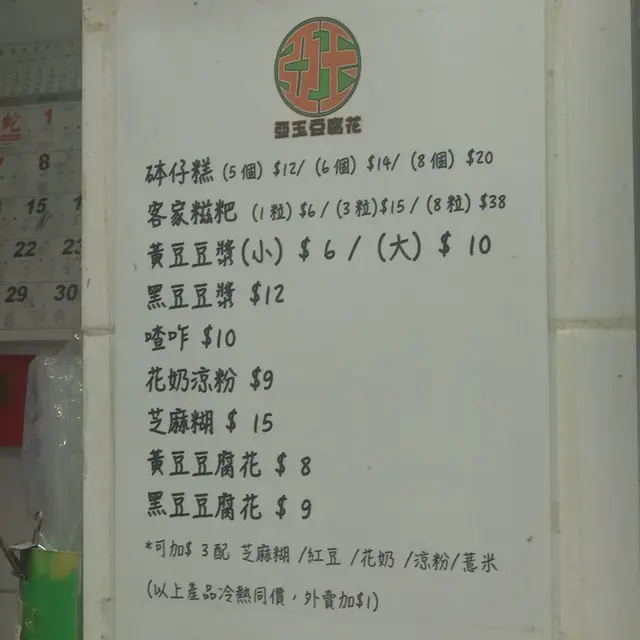 亞玉豆腐花
砵仔糕 (5個) $12/ (6個) $14/ (8個) $20
客家糍粑 (1粒) $6 / (3粒)$15 / (8粒) $38
黃豆豆漿(小) $ 6 / (大) $ 10
黑豆豆漿 $12
喳咋 $10
花奶涼粉 $9
芝麻糊 $ 15
黃豆豆腐花 $ 8
黑豆豆腐花 $ 9
*可加$ 3配 芝麻糊 /紅豆 /花奶 /涼粉/薏米
(以上產品冷熱同價，外賣加$1)
蛇 1
8
15
22 23
29 30